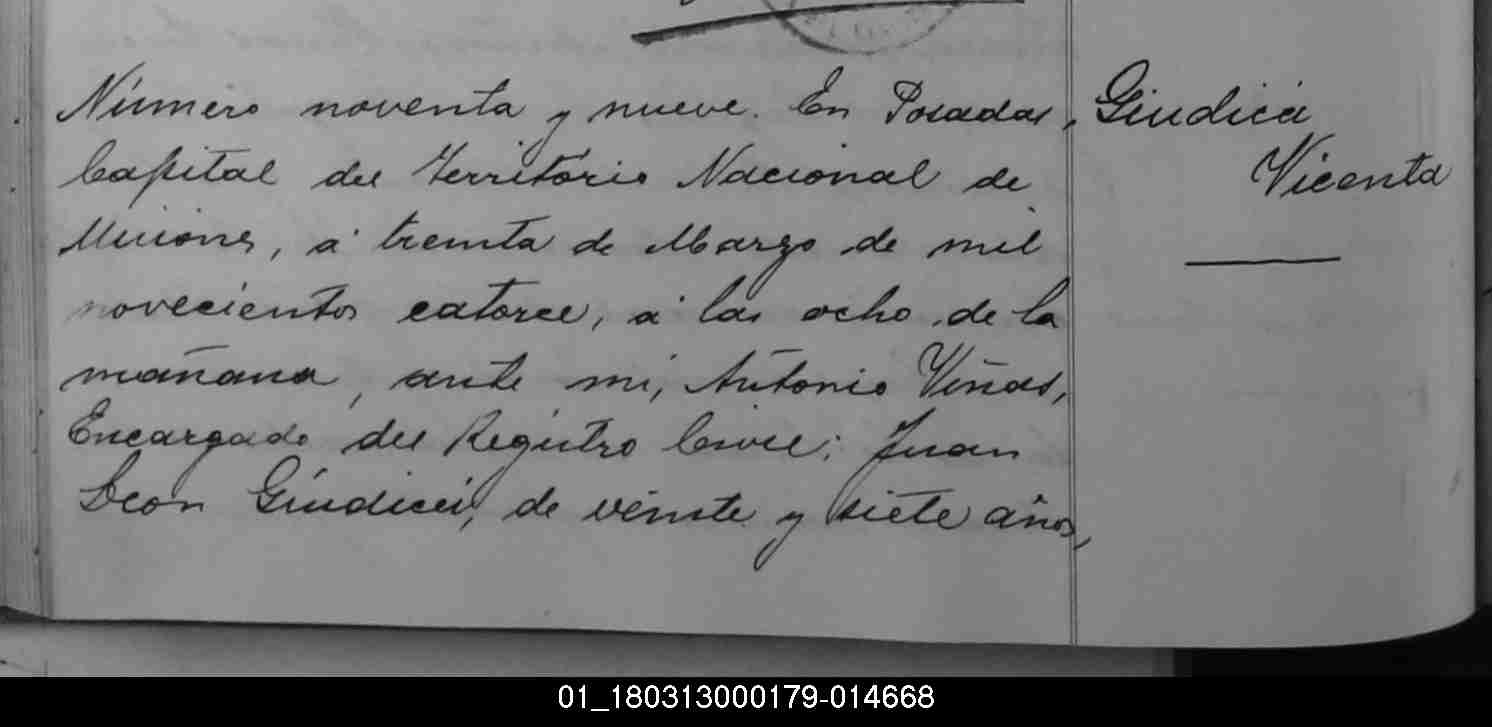 Número noventa y nueve. En Posadas,
Capital del Territorio Nacional de
Misiones, á treinta de Marzo de mil
novecientos catorce, á las ocho de la
mañana, ante mi, Antonio Viñas,
Encargado del Registro Civil; Juan
Leon Giudici, de veinte y siete años,
Giudici
Vicenta
01_180313000179-014668